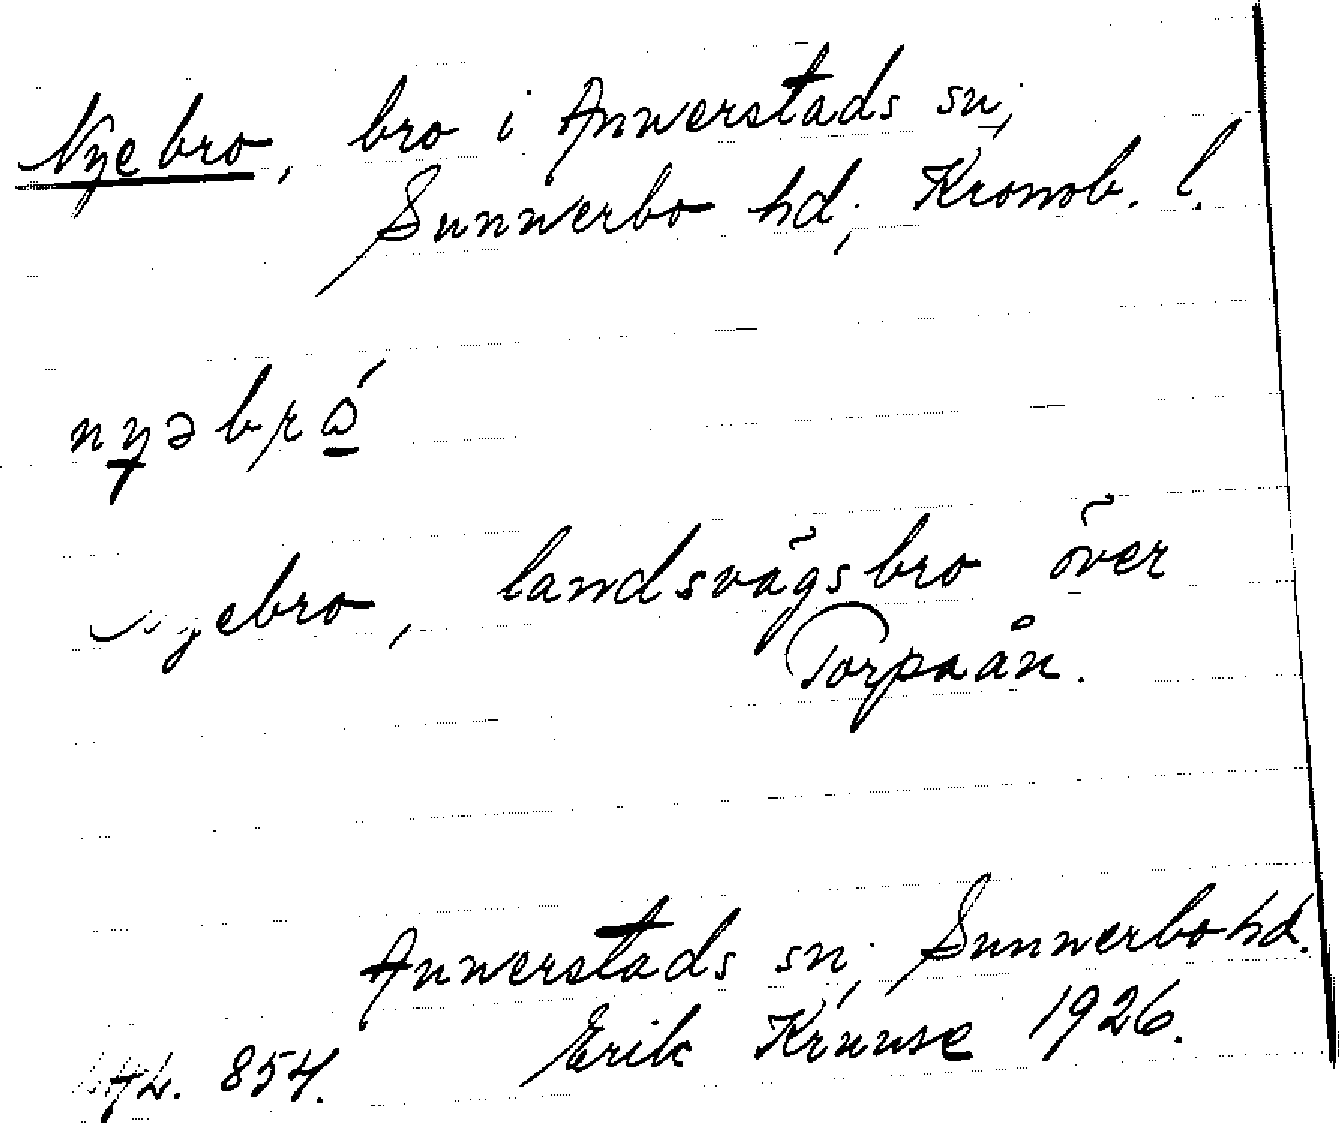 Nyebro, bro i Annerstads sn;
Sunnerbo hd; Kronob. l.
nyəbró
Nyebro, landsvägsbro över
Torpaån.
Annerstads sn; Sunnerbo hd.
854. Erik Kruuse 1926.